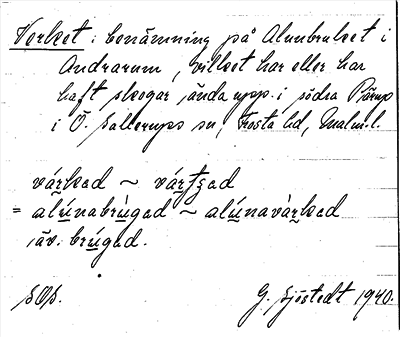 Verket: benämning på Alunbruket i
Andrarum, vilket har eller har
haft skogar ända upp i södra Pärup
i Ö. Sallerups sn, Frosta hd, Malm.l.
várkad ~ vártʒad
= alúnabrùgad ~ alúnavàrkad
äv. brúgad.
SOS.
G. Sjöstedt 1940.